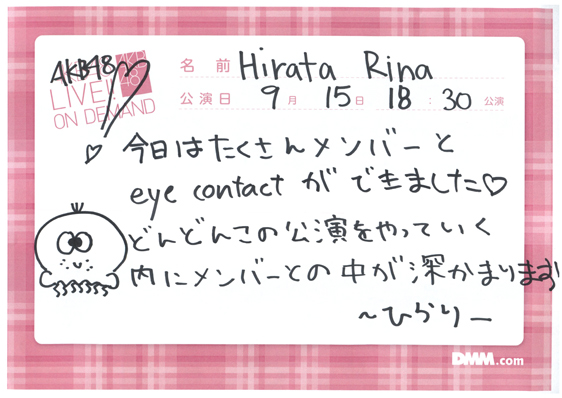 AKB48
AKB48
LIVE!!
ON DEMAND
名前 Hirata Rina
公演日 9月 15日 18:30 公演
♡ 今日はたくさんメンバーと
eye contact ができました♡
どんどんこの公演をやっていく
内にメンバーとの中が深かまります
～ひらりー
DMM.com